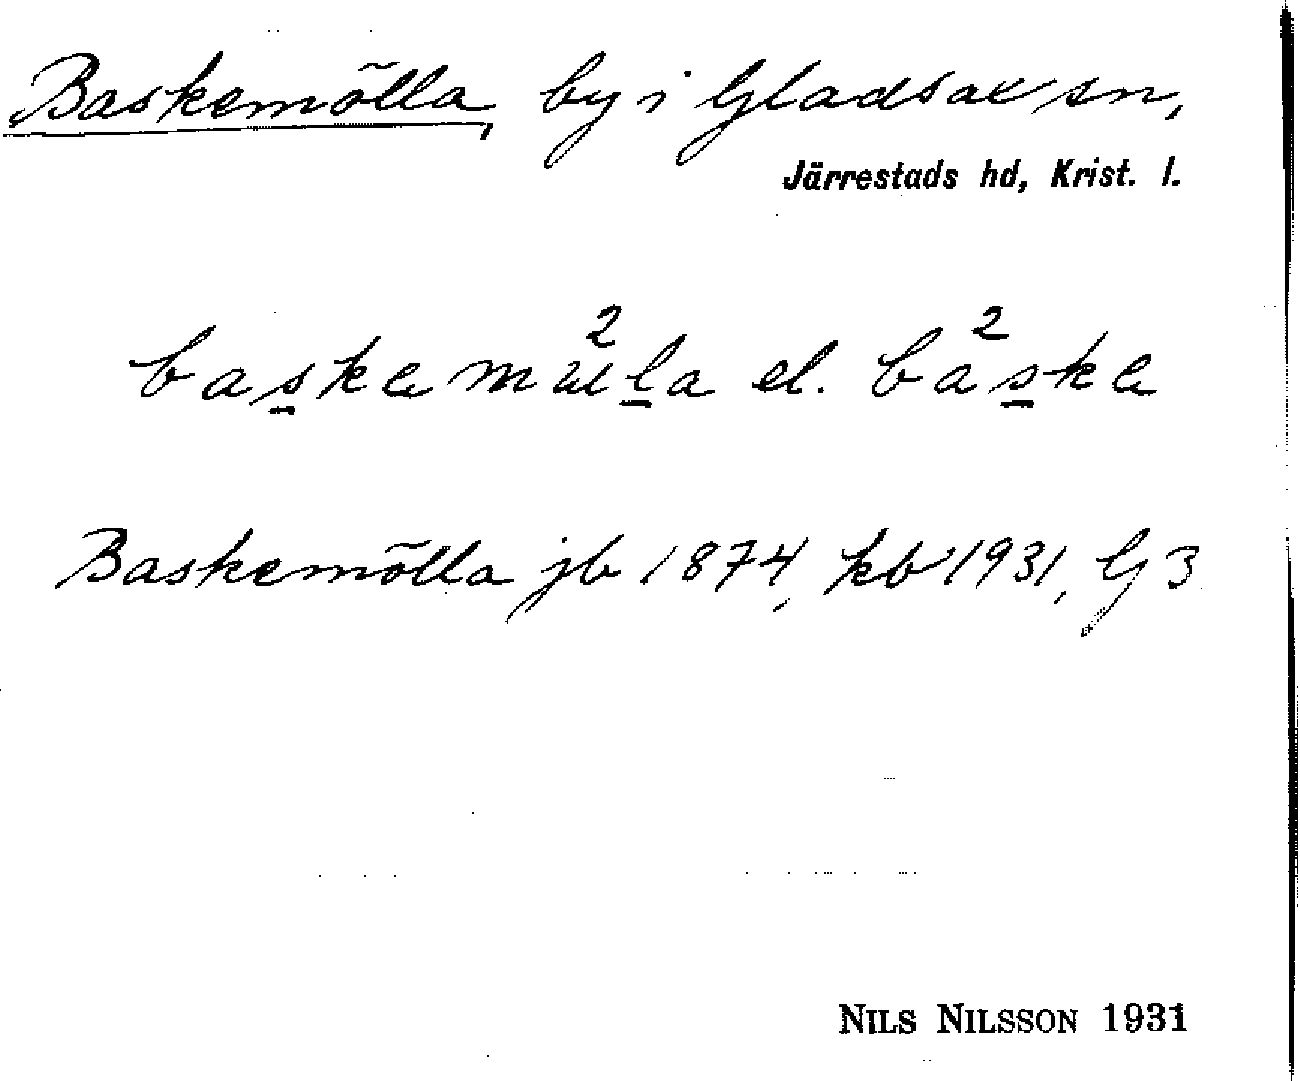 Baskemölla, by i Gladsax sn,
Järrestads hd, Krist. l.
el.
Baskemölla jb 1874, kb 1931, G 3
NILS NILSSON 1931